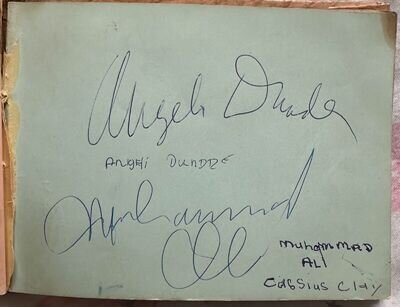 Angelo Dundee
ANGELI DUNDEE
Muhammad
Ali
MUHAMMAD
ALI
CASSIUS CLAY